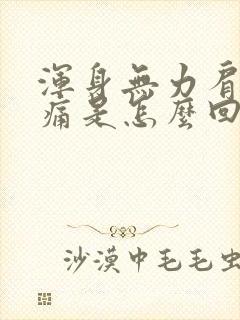 渾身無力肩
痛是怎麼回
沙漠中毛毛虫